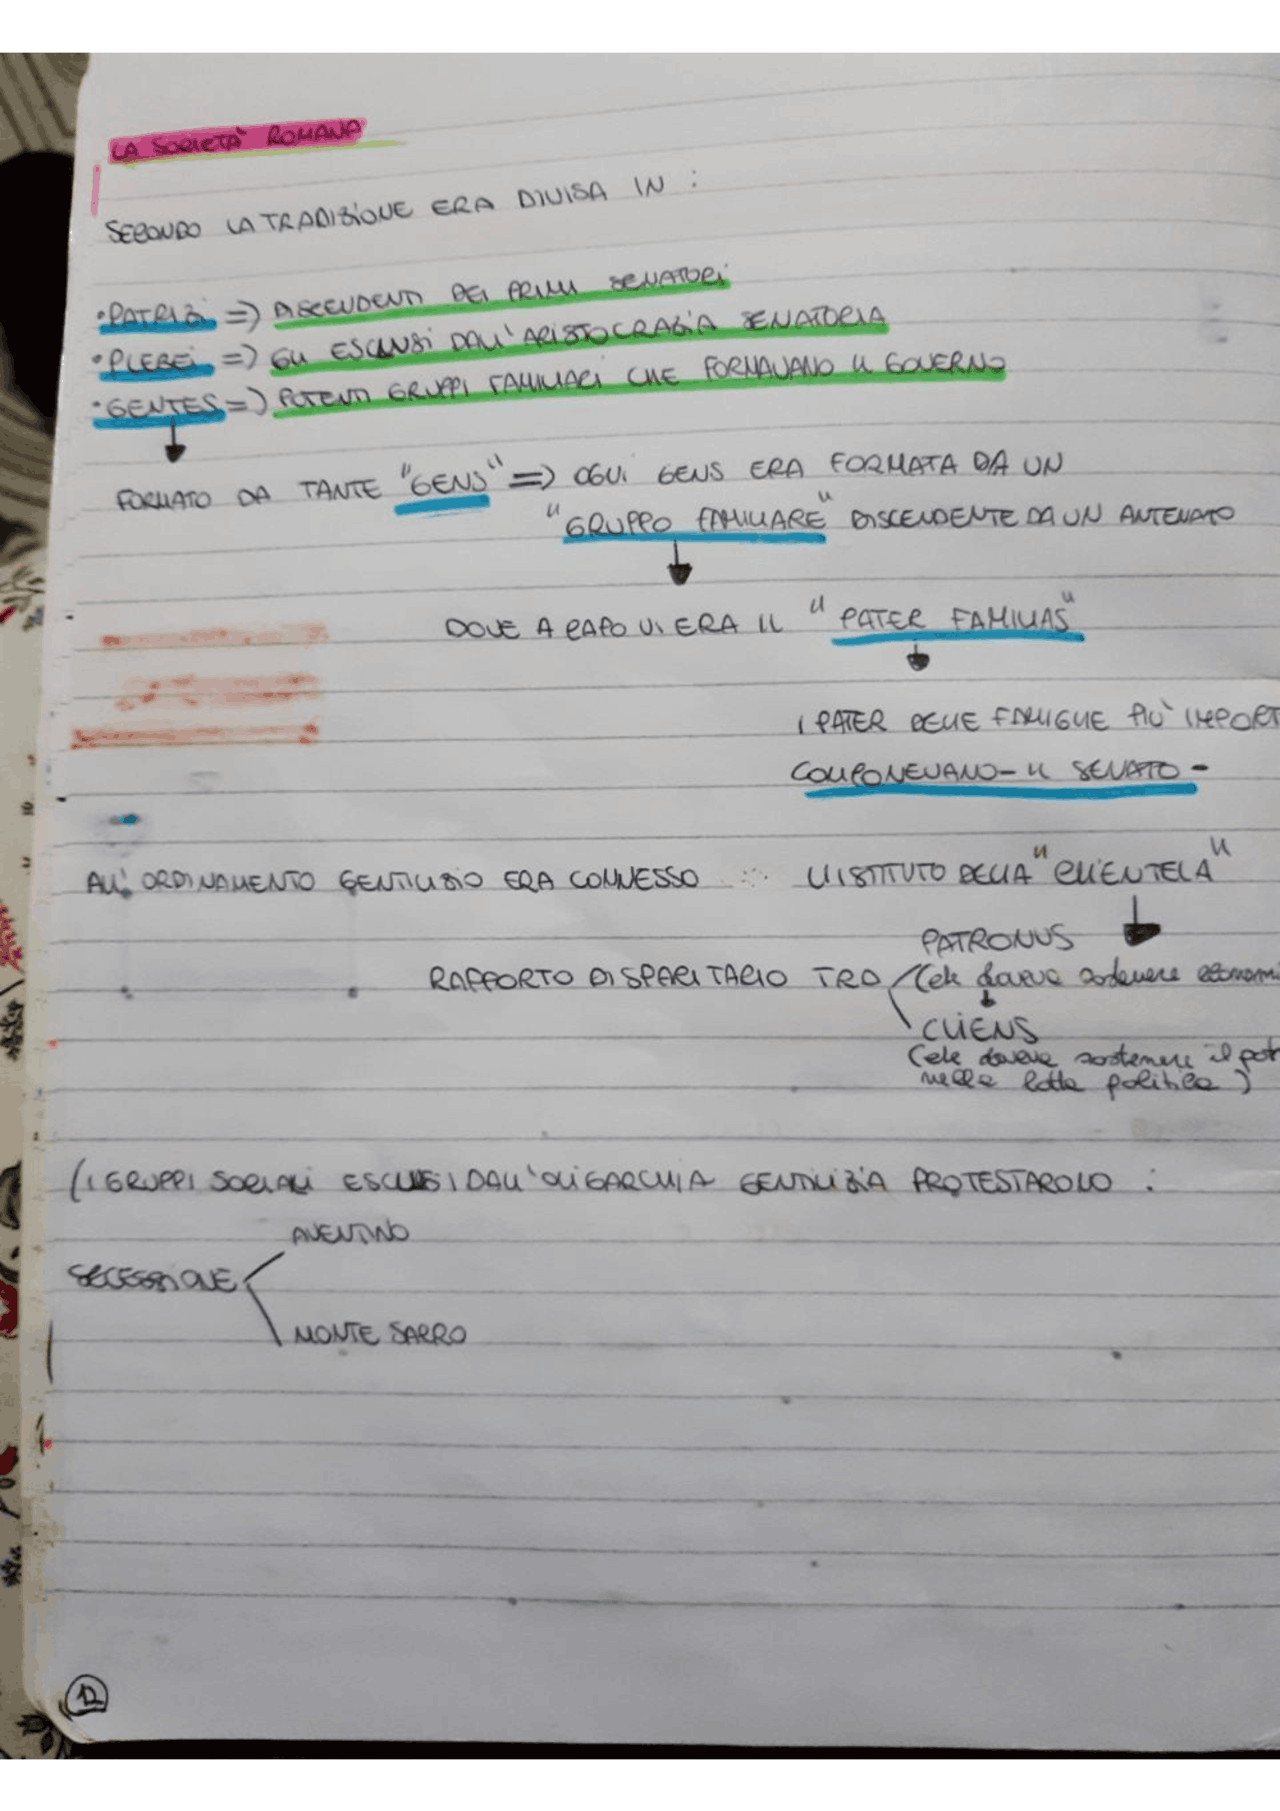 LA SOCIETÀ ROMANA
SECONDO LA TRADIZIONE ERA DIVISA IN :
• PATRIZI => DISCENDENTI DEI PRIMI SENATORI
• PLEBEI => GLI ESCLUSI DALL'ARISTOCRAZIA SENATORIA
• GENTES => POTENTI GRUPPI FAMILIARI CHE FORMAVANO IL GOVERNO
FORMATO DA TANTE "GENS" => OGNI GENS ERA FORMATA DA UN
"GRUPPO FAMILIARE" DISCENDENTE DA UN ANTENATO
DOVE A CAPO VI ERA IL "PATER FAMILIAS"
I PATER DELLE FAMIGLIE PIÙ IMPORT
COMPONEVANO - IL SENATO -
ALL'ORDINAMENTO GENTILIZIO ERA CONNESSO L'ISTITUTO DELLA "CLIENTELA"
PATRONUS
RAPPORTO DISPARITARIO TRA (che doveva sostenere economi
CLIENS
(che doveva sostenere il pat
nella lotta politica)
(I GRUPPI SOCIALI ESCLUSI DALL'OLIGARCHIA GENTILIZIA PROTESTAROLO :
AVENTINO
SECESSIONE
MONTE SACRO
12